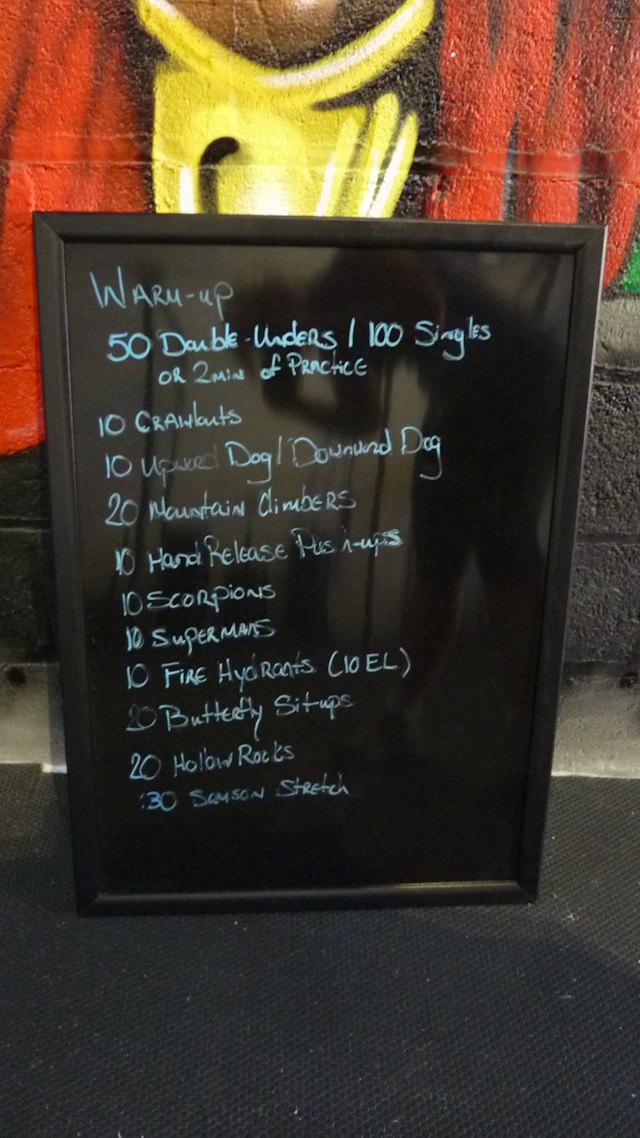 Warm-up
50 Double-Unders / 100 Singles
or 2 min of Practice
10 Crawlouts
10 Upward Dog / Downward Dog
20 Mountain Climbers
10 Hand Release Push-ups
10 Scorpions
10 Supermans
10 Fire Hydrants (10 EL)
20 Butterfly Sit-ups
20 Hollow Rocks
:30 Samson Stretch